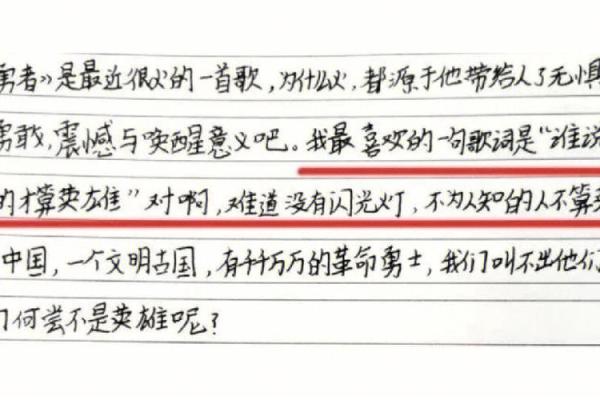 勇者》是最近很火的一首歌,为什么火,都源于他带给人了无惧
勇敢,震憾与唤醒意义吧。我最喜欢的一句歌词是“谁说
的才算英雄”对啊,难道没有闪光灯,不为人知的人不算英
中国,一个文明古国,有千千万万的革命勇士,我们叫不出他们
门何尝不是英雄呢?